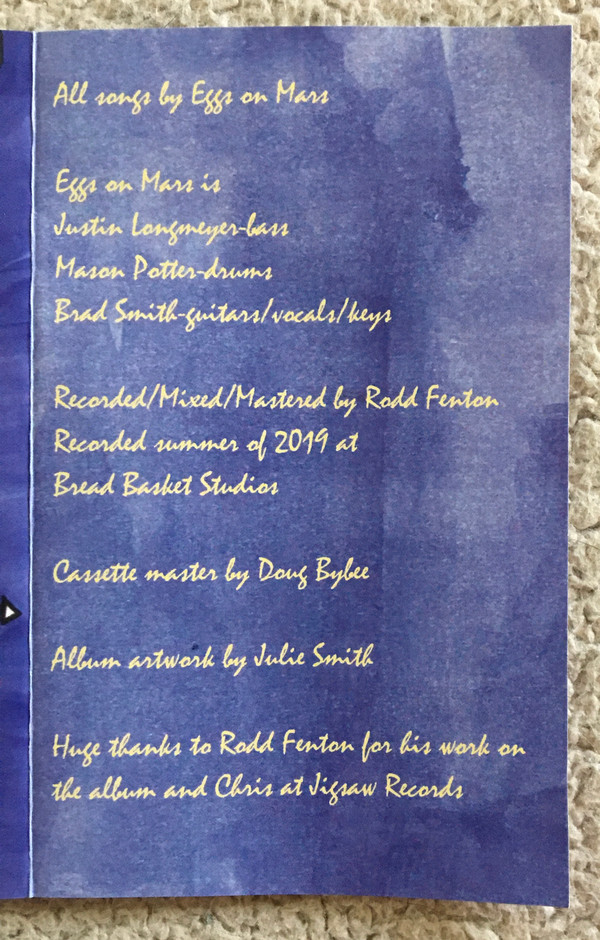 All songs by Eggs on Mars
Eggs on Mars is
Justin Longmeyer-bass
Mason Potter-drums
Brad Smith-guitars/vocals/keys
Recorded/Mixed/Mastered by Rodd Fenton
Recorded summer of 2019 at
Bread Basket Studios
Cassette master by Doug Bybee
Album artwork by Julie Smith
Huge thanks to Rodd Fenton for his work on
the album and Chris at Jigsaw Records